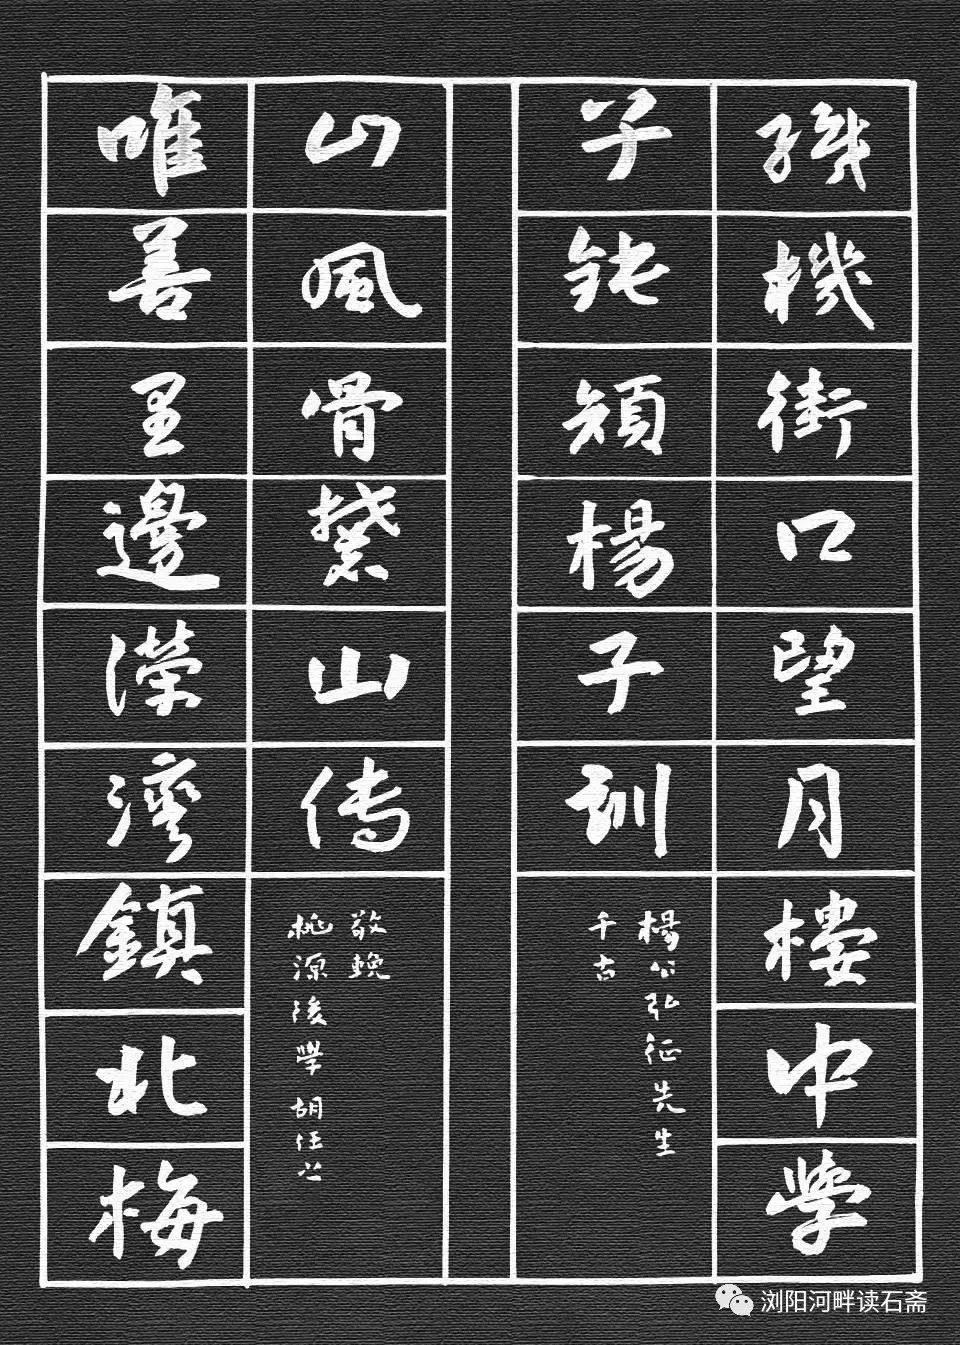 織機街口望月樓中學
子鈍楊子訓
楊公弘征先生
千古
唯善里邊溁灣鎮北梅
山風骨山傳
敬輓
桃源後學 胡任之
浏阳河畔读石斋